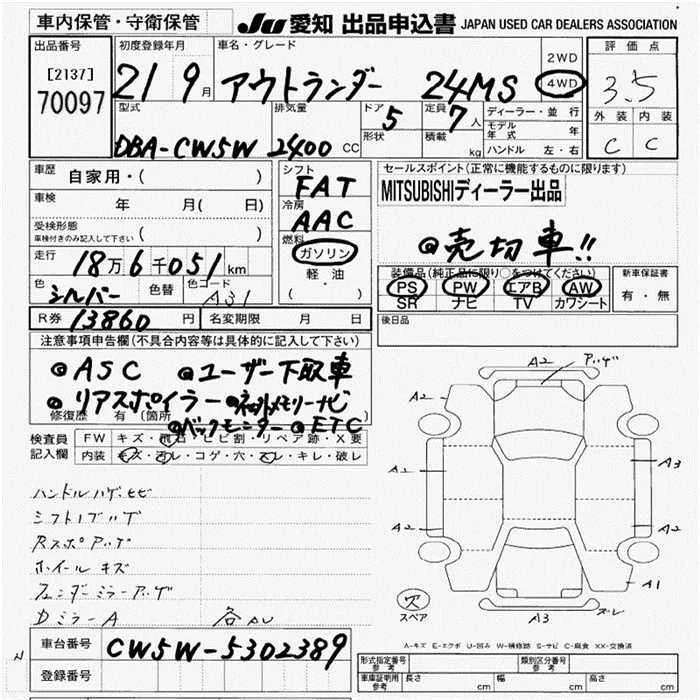 車内保管・守衛保管 JU 愛知 出品申込書 JAPAN USED CAR DEALERS ASSOCIATION
出品番号 [2137] 70097
初度登録年月 21 9月
車名・グレード アウトランダー 24MS
2WD 4WD
評価点 3.5
外装 内装 C C
型式 DBA-CW5W
排気量 2400 CC
ドア 5 形状
定員 7人 積載 kg
ディーラー・並行
モデル年式 年
ハンドル 左・右
車歴 自家用・( )
車検 年 月( 日)
受検形態 車検付きのみ記入して下さい ( )
走行 18万6千051km
色 シルバー 色替 色コード A31
シフト FAT
冷房 AAC
燃料 ガソリン 軽油 ( ・ )
セールスポイント(正常に機能するものに限ります)
MITSUBISHIディーラー出品
◎売切車!!
装備品(純正品に限り○をつけてください)
PS PW エアB AW
SR ナビ TV カワシート
新車保証書 有・無
後日品
R券 13860円 名変期限 月 日
注意事項申告欄(不具合内容等は具体的に記入して下さい)
◎ASC ◎ユーザー下取車
◎リアスポイラー ◎ネット×メモリーナビ
修復歴 有(箇所 )
◎バックモニター ◎ETC
検査員記入欄
FW キズ・飛石・ヒビ割・リペア跡・X要
内装 キズ・汚レ・コゲ・穴・スレ・キレ・破レ
ハンドルハゲ・ヒビ
シフト1ブハゲ
Rスポアハゲ
ホイールキズ
フェンダーミラーアハゲ
DミラーA 各AU
A2 アハゲ
A2
A1 A3
A2 A2
A1
欠 スペア
A3 スレ
A-キズ E-エクボ U-凹み W-補修跡 S-サビ C-腐食 XX-交換済
N
車台番号 CW5W-5302389
登録番号
形式指定番号 参考 類別区分番号 参考
車庫証明用 参考 長さ cm 幅 cm 高さ cm